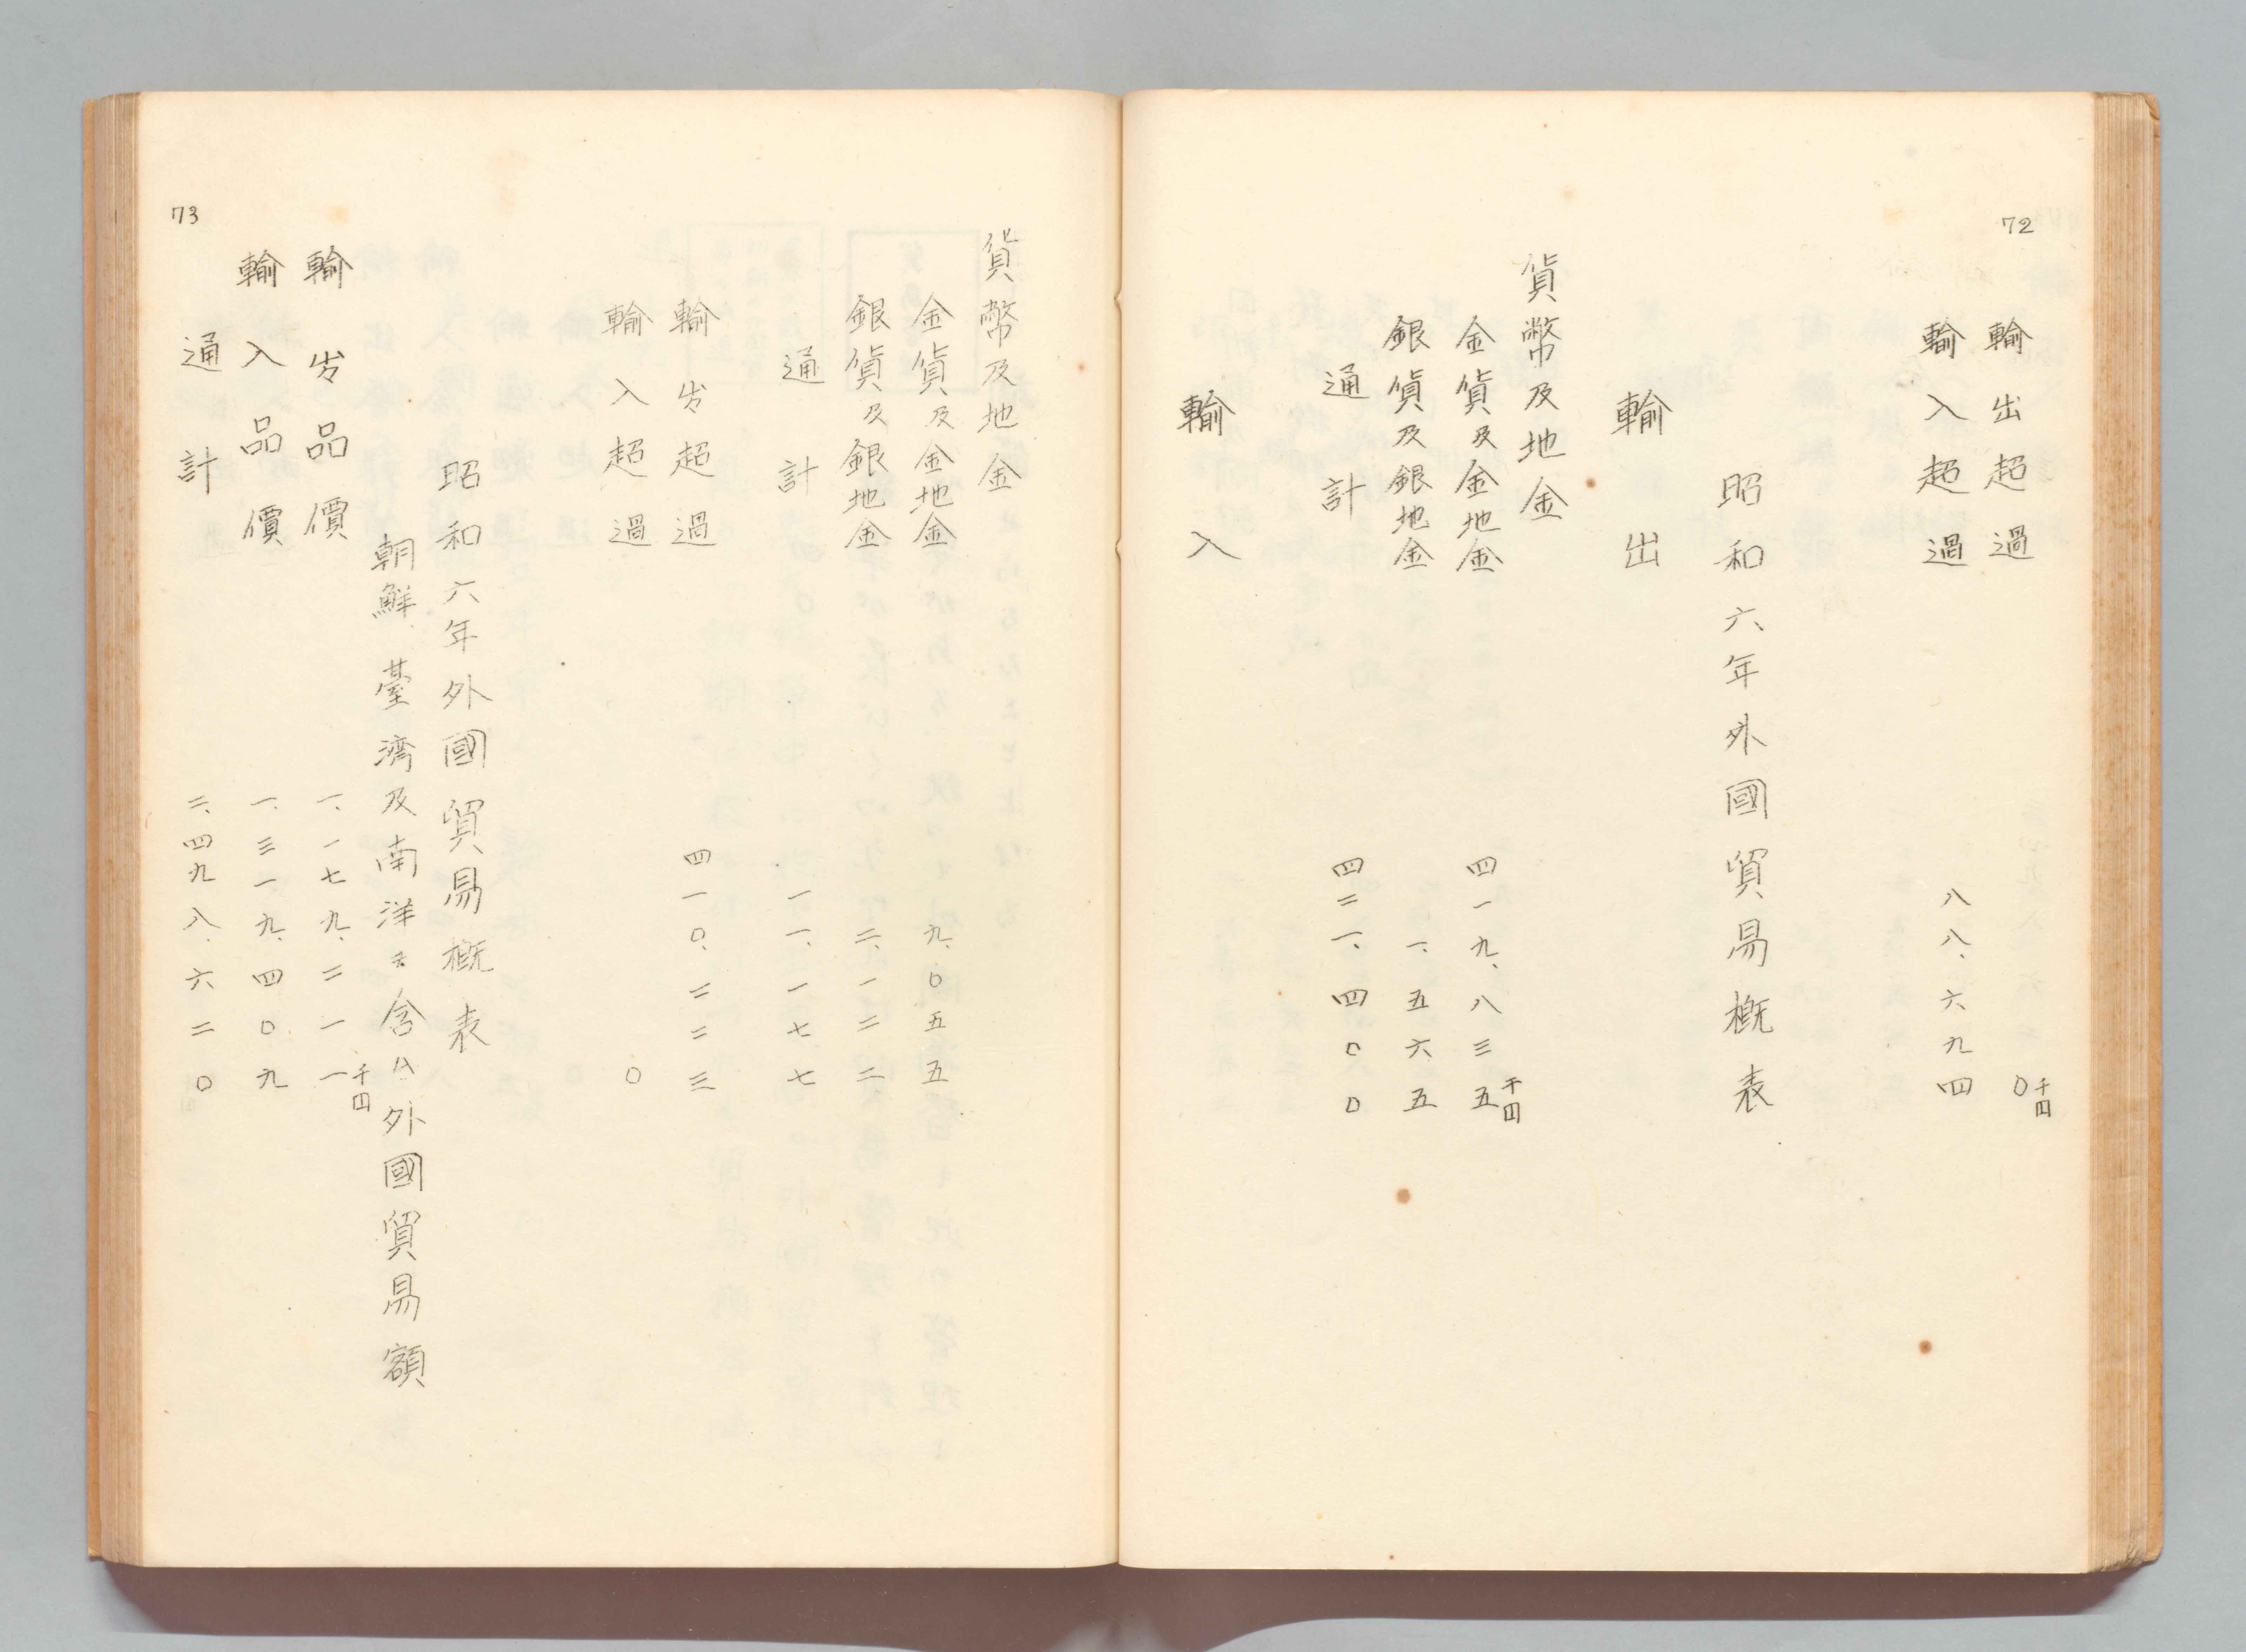 72
輸出超過 〇千円
輸入超過 八八、六九四
昭和六年外國貿易概表
輸出
貨幣及地金
金貨及金地金 四一九、八三五千円
銀貨及銀地金 一、五六五
通計 四二一、四〇〇
輸入
73
貨幣及地金
金貨及金地金 九、〇五五
銀貨及銀地金 二、一二二
通計 一一、一七七
輸出超過 四一〇、二二三
輸入超過 〇
昭和六年外國貿易概表
朝鮮 臺湾及南洋ヲ含ム外國貿易額
輸出品價 一、一七九、二一一千円
輸入品價 一、三一九、四〇九
通計 二、四九八、六二〇